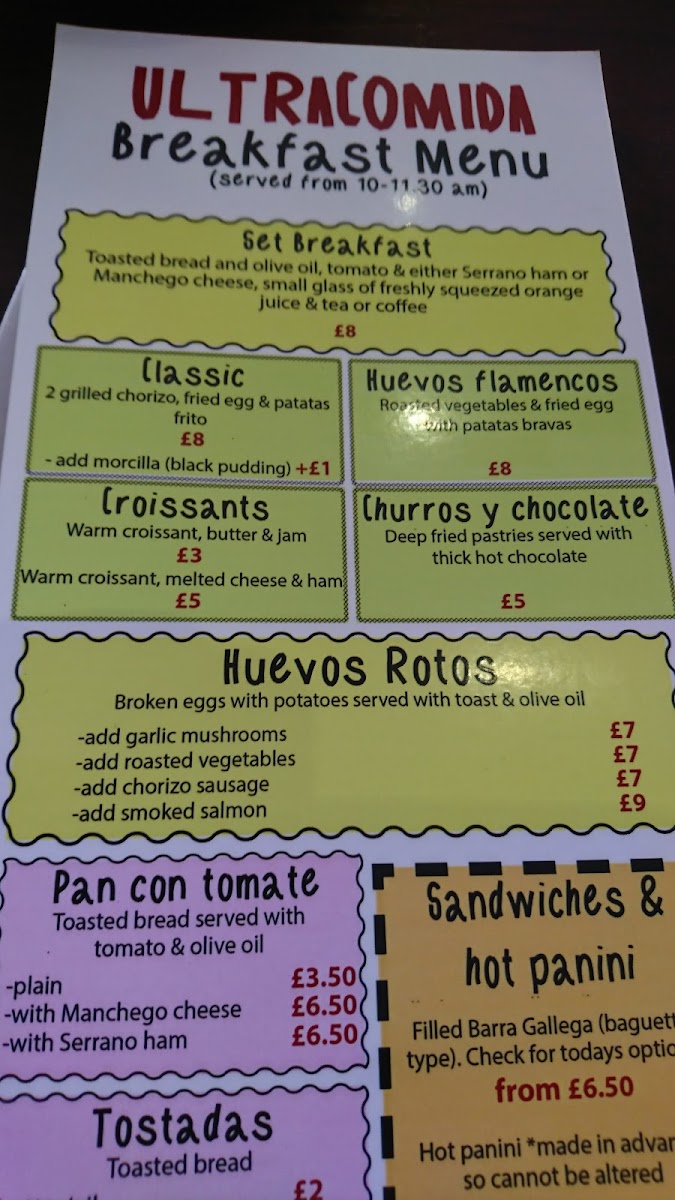 ULTRACOMIDA
Breakfast Menu
(served from 10-11.30 am)
Set Breakfast
Toasted bread and olive oil, tomato & either Serrano ham or
Manchego cheese, small glass of freshly squeezed orange
juice & tea or coffee
£8
Classic
2 grilled chorizo, fried egg & patatas
frito
£8
- add morcilla (black pudding) +£1
Huevos flamencos
Roasted vegetables & fried egg
with patatas bravas
£8
Croissants
Warm croissant, butter & jam
£3
Warm croissant, melted cheese & ham
£5
Churros y chocolate
Deep fried pastries served with
thick hot chocolate
£5
Huevos Rotos
Broken eggs with potatoes served with toast & olive oil
-add garlic mushrooms £7
-add roasted vegetables £7
-add chorizo sausage £7
-add smoked salmon £9
Pan con tomate
Toasted bread served with
tomato & olive oil
-plain £3.50
-with Manchego cheese £6.50
-with Serrano ham £6.50
Tostadas
Toasted bread
£2
Sandwiches &
hot panini
Filled Barra Gallega (baguett
type). Check for todays optio
from £6.50
Hot panini *made in advan
so cannot be altered